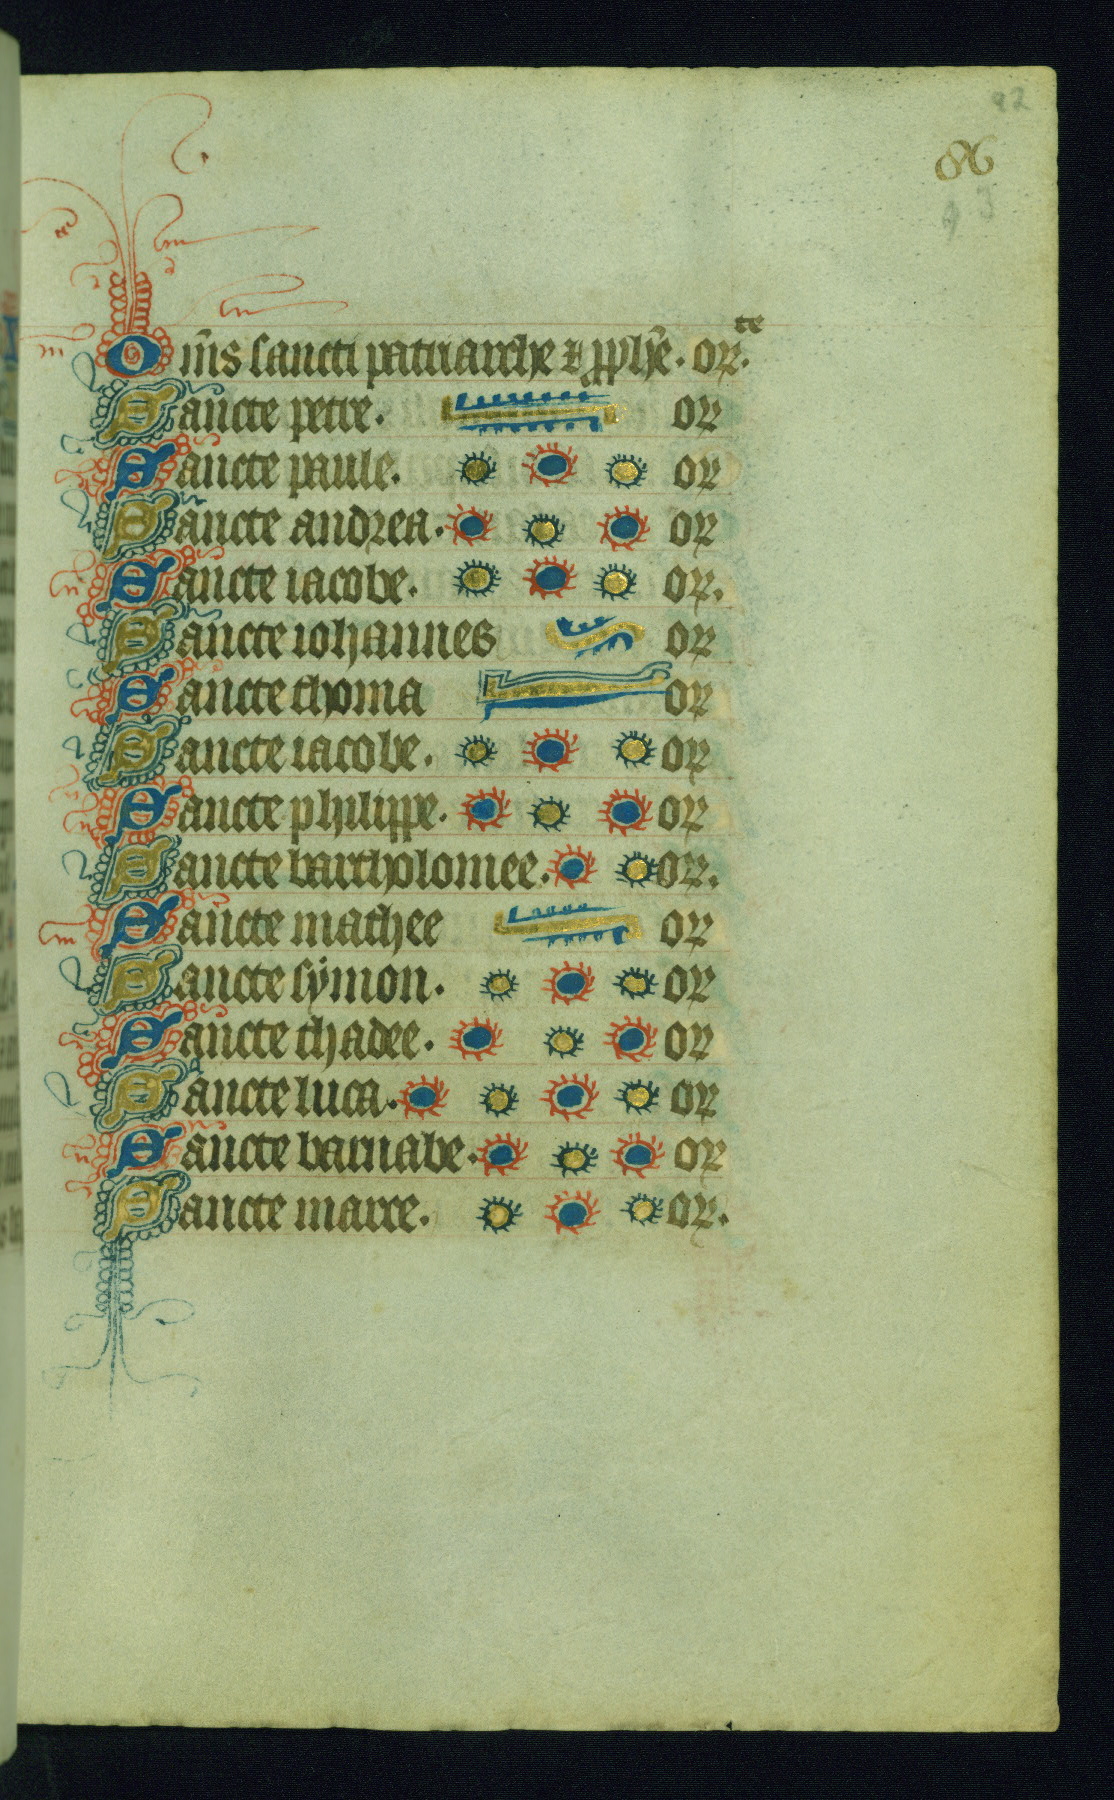 92
86
93
Om̄s sancti patriarche ⁊ ꝓphē. or.te
Sancte petre. or
Sancte paule. or
Sancte andrea. or
Sancte iacobe. or.
Sancte iohannes or
Sancte thoma or
Sancte iacobe. or
Sancte philippe. or
Sancte bartholomee. or.
Sancte mathee or
Sancte symon. or
Sancte thadee. or
Sancte luca. or
Sancte barnabe. or
Sancte marce. or.